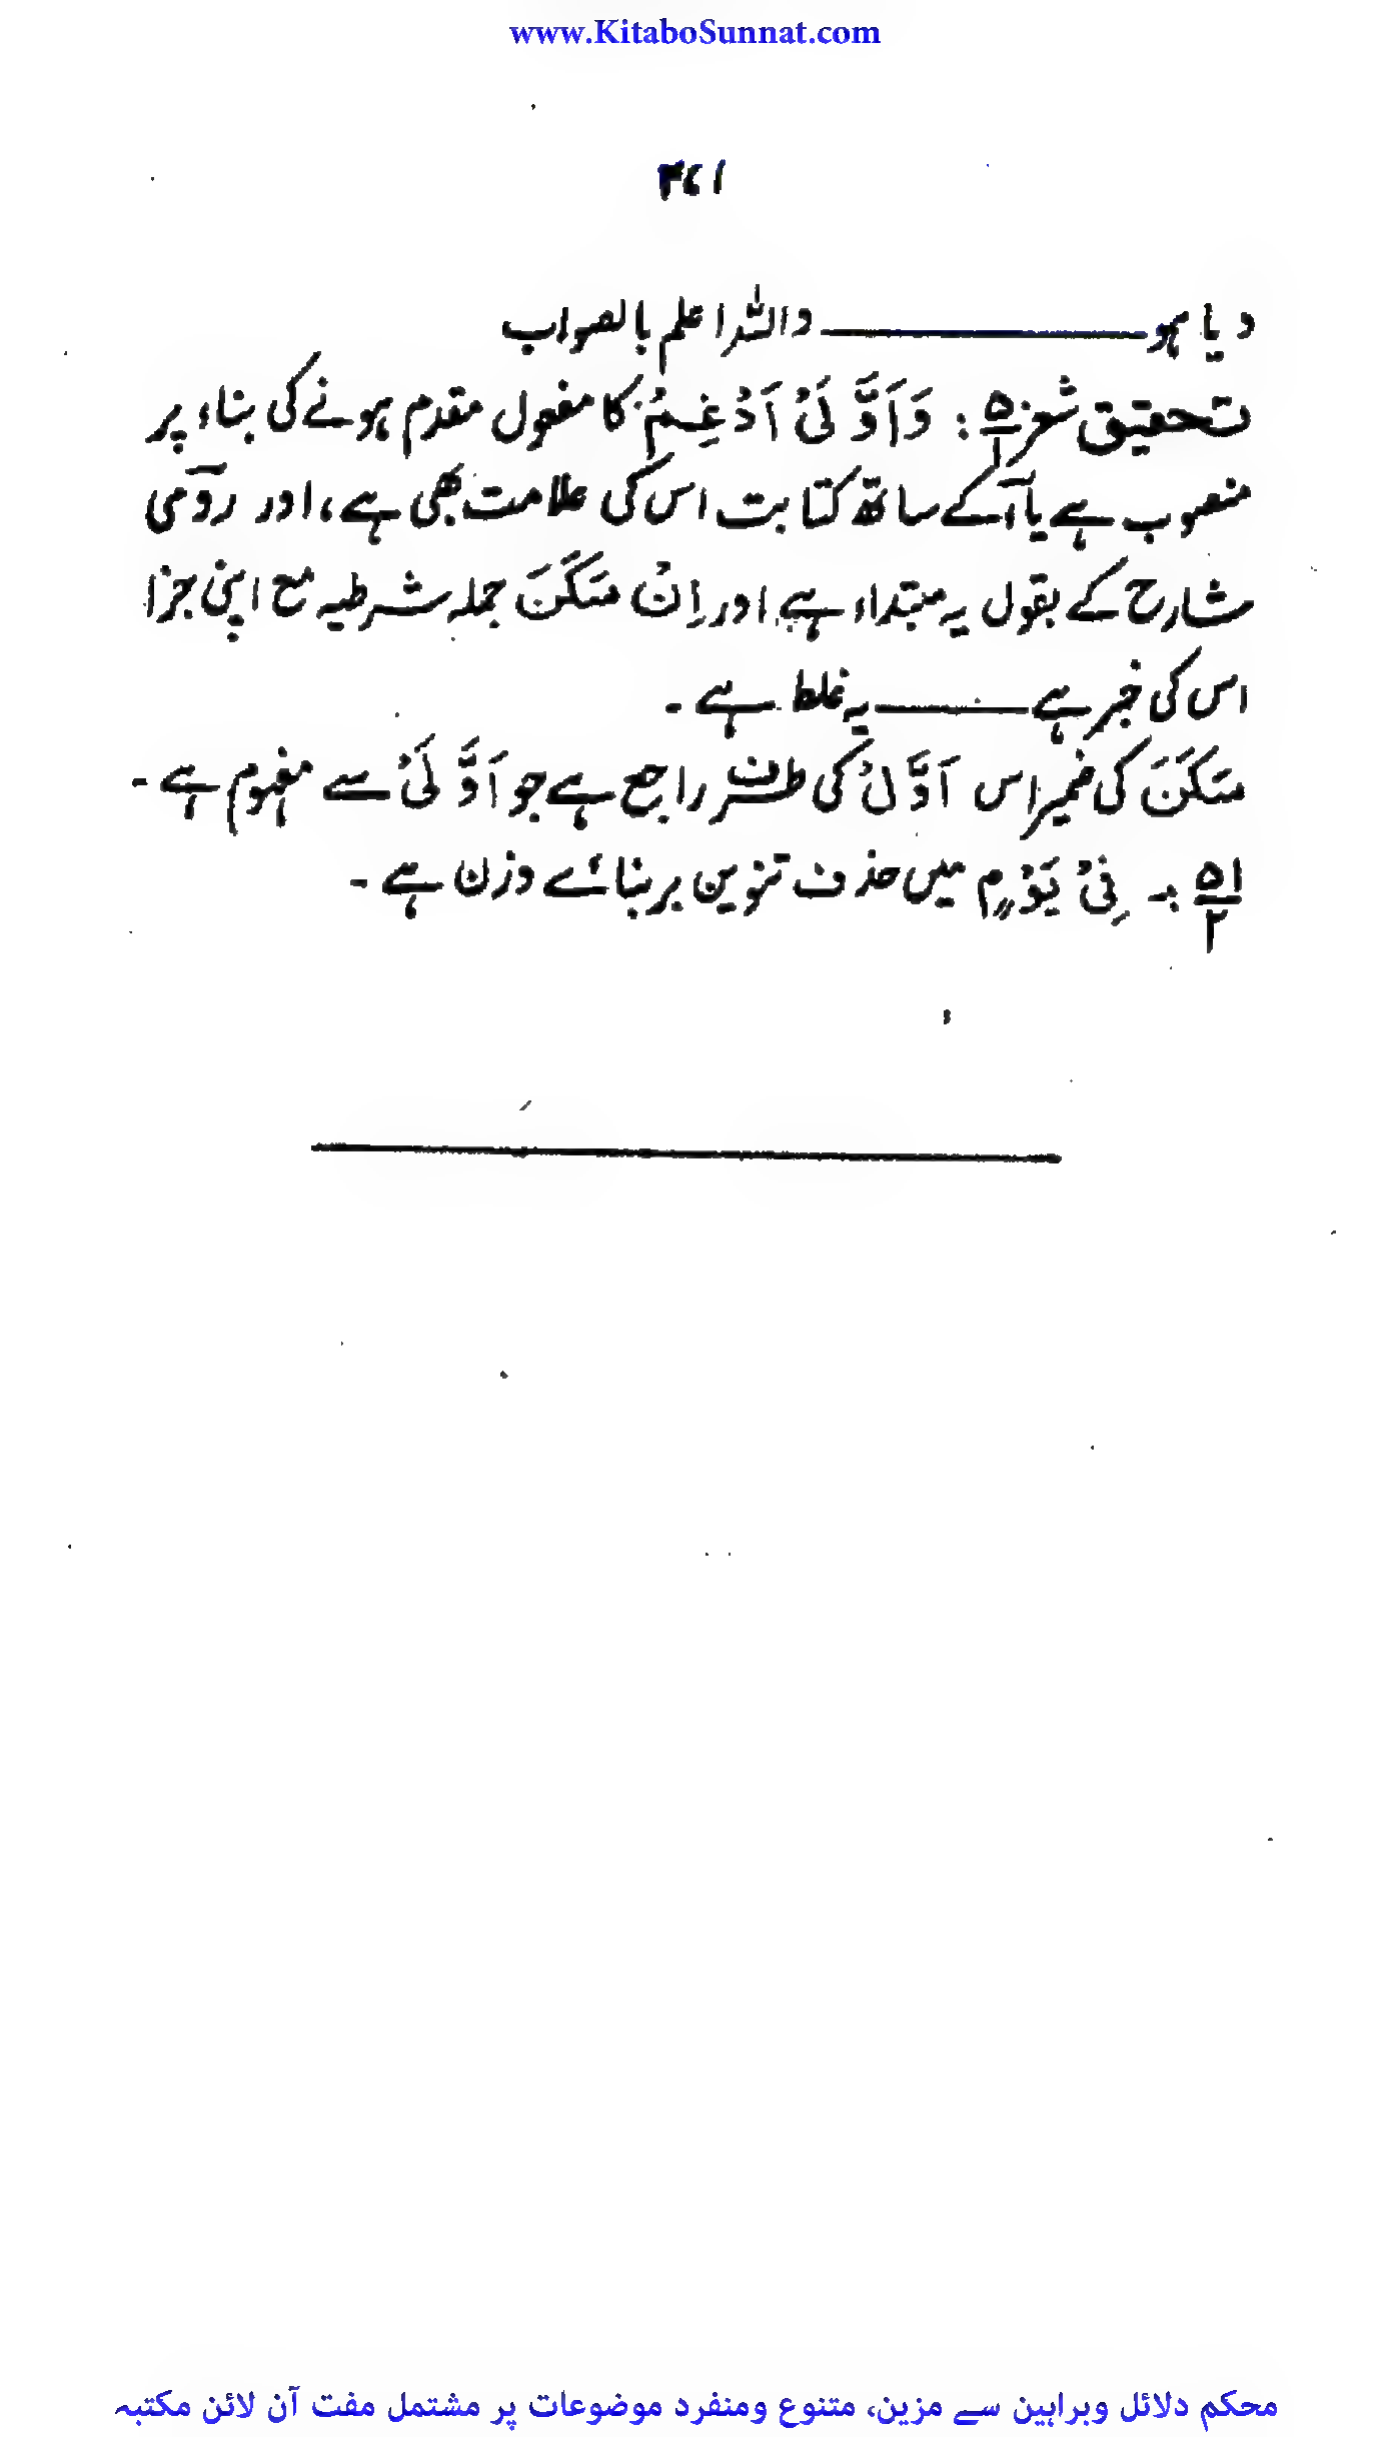 www.KitaboSunnat.com
۳۷۱
دیا ہو ـــــــــــ واللہ اعلم بالصواب
تحقیق شعر ۵۰/۱ : وَاَوَّلَیْ اَدْغِمْ کا مفعول مقدم ہونے کی بناء پر
منصوب ہے یا آ کے ساتھ کتابت اس کی علامت بھی ہے، اور رومی
شارح کے بقول یہ مبتداء ہے اور اِنْ سَکَنَ جملہ شرطیہ مع اپنی جزا
اس کی خبر ہے ـــــــ یہ غلط ہے ۔
سَکَنَ کی ضمیر اس اَوَّلْ کی طرف راجع ہے جو اَوَّلَیْ سے مفہوم ہے ۔
۵۱/۲ :۔ فِیْ یَوْمِ میں حذف تنوین بر بنائے وزن ہے ۔
محکم دلائل وبراہین سے مزین، متنوع ومنفرد موضوعات پر مشتمل مفت آن لائن مکتبہ